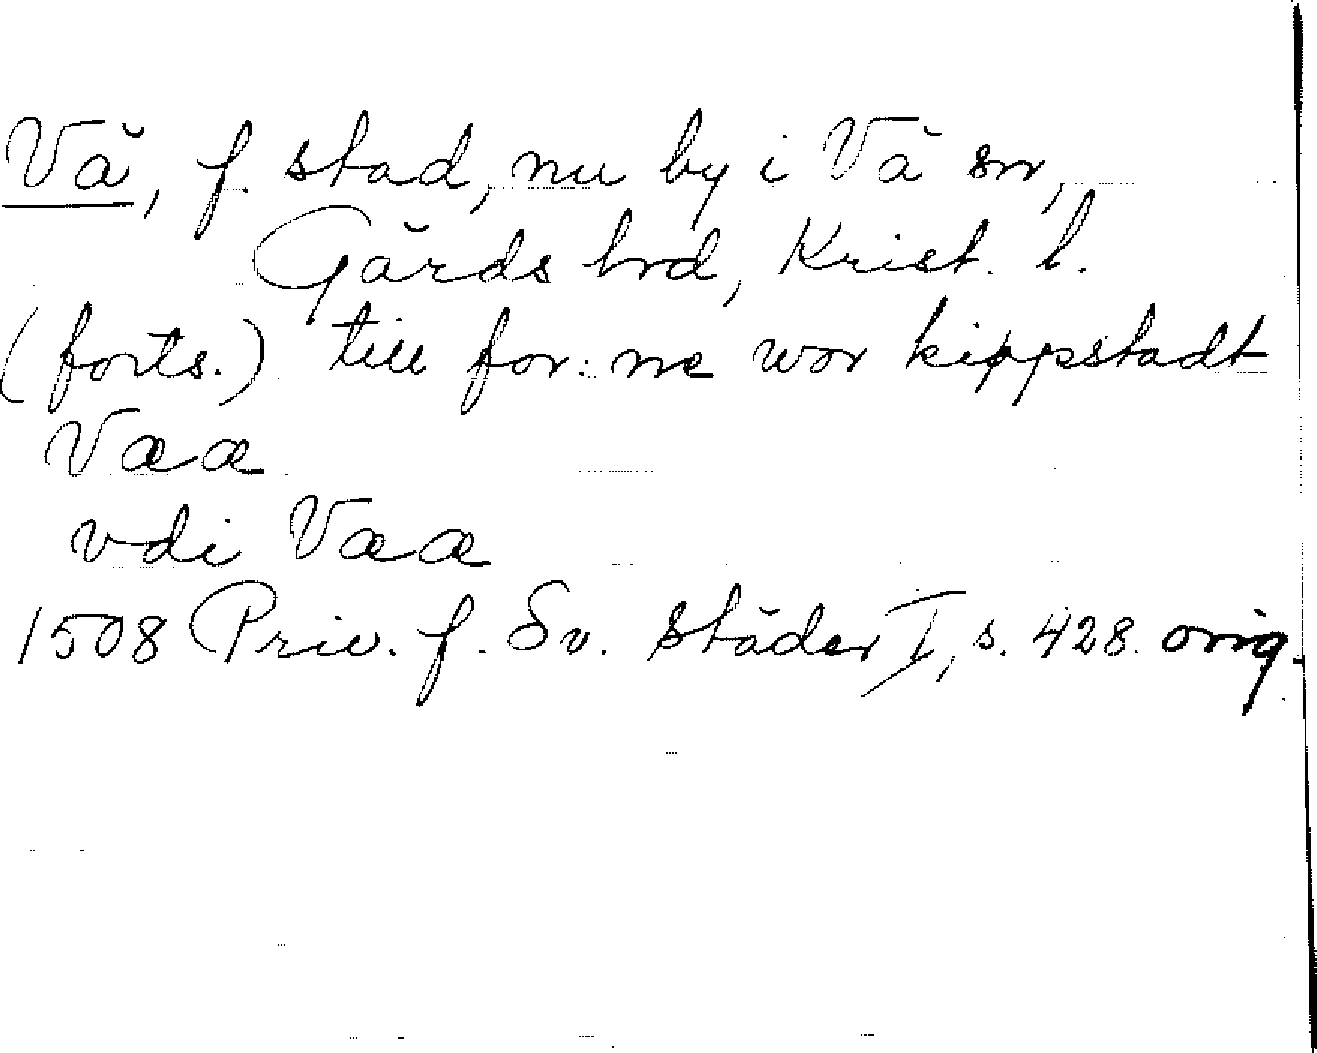 Vä, f. stad, nu by i Vä sn,
Gärds hrd, Krist. l.
(forts.) till for: ne wor kippstadt
Vaa
vdi Vaa
1508 Priv. f. Sv. städer I, s. 428. orig.